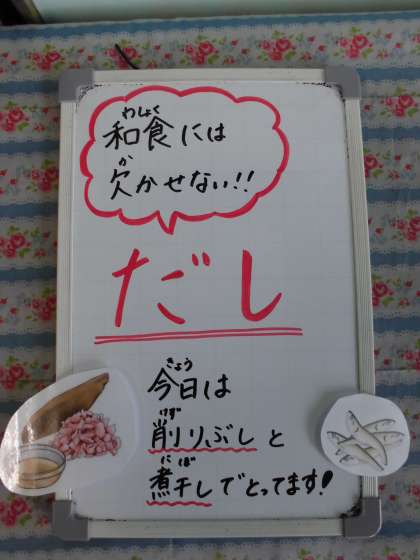 わしょく
和食には
か
欠かせない!!
だし
きょう
今日は
けず
削りぶしと
にぼ
煮干しでとってます!